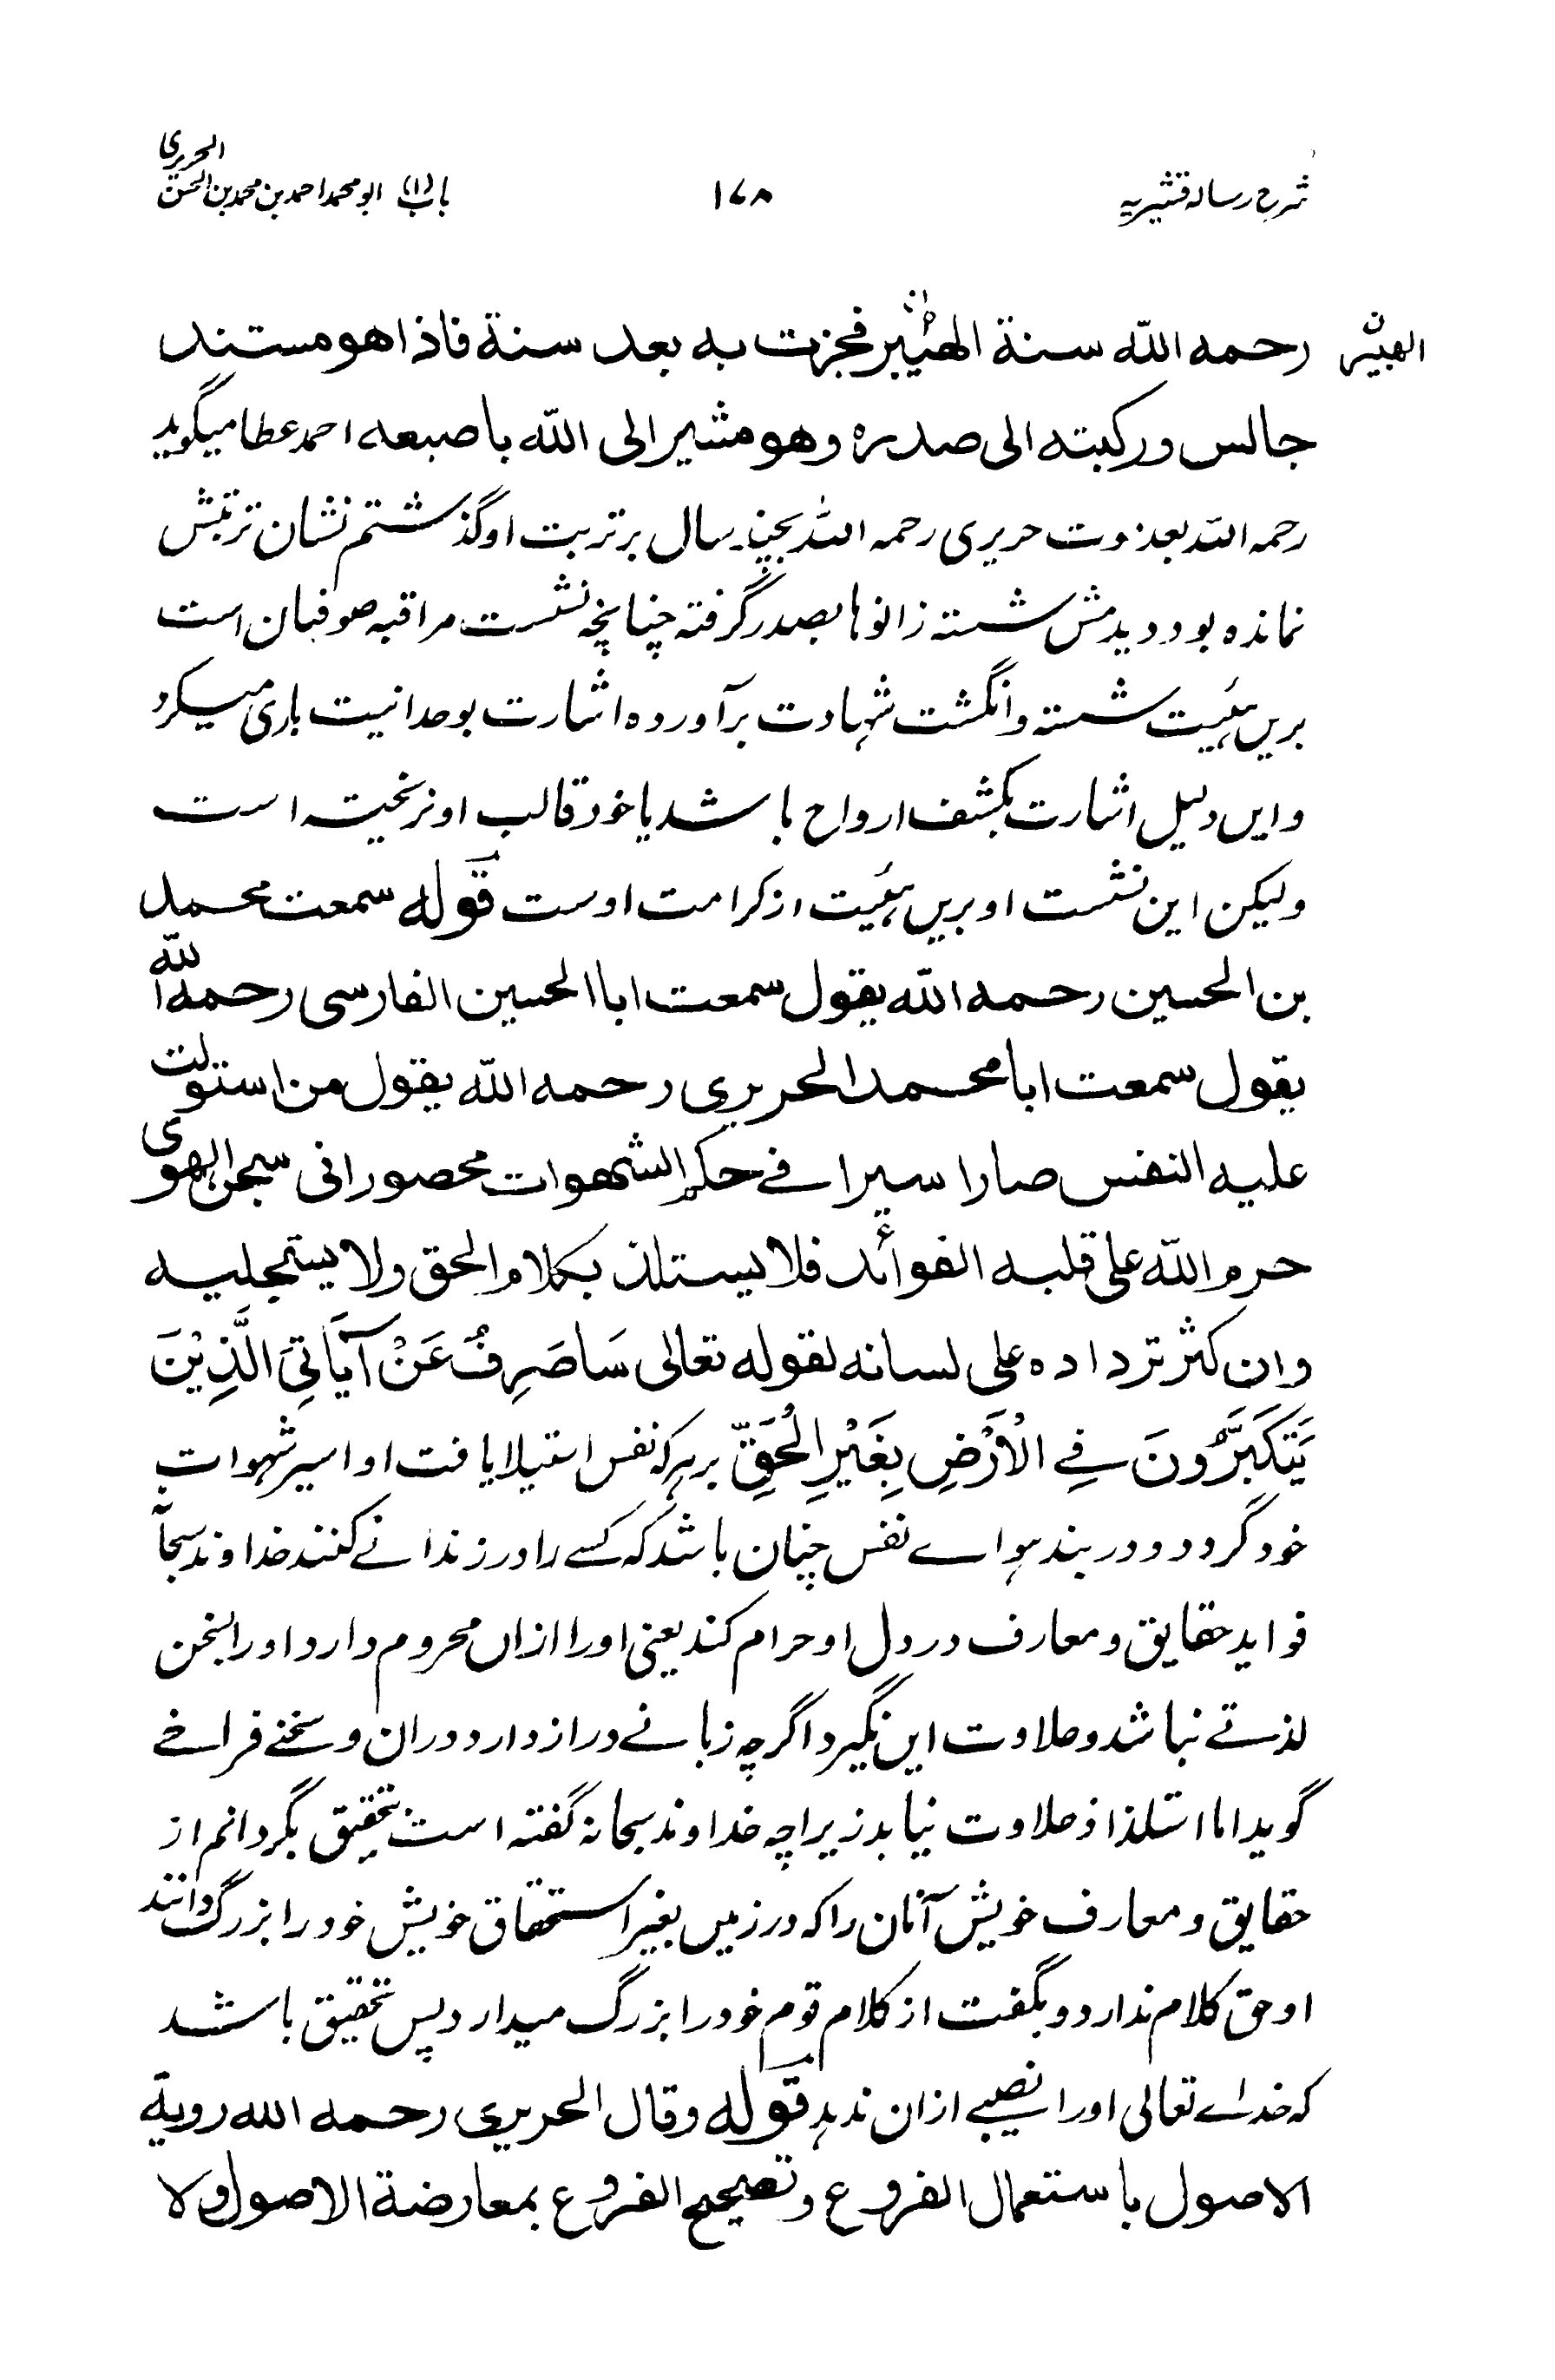 شرح رساله قشیریه ۱۷۸ باب (۱) ابو محمد احمد بن محمد بن الحسین الحریری
رحمه الله سنة الهبیر فجزت به بعد سنة فاذا هو مستند
جالس ورکبته الی صدره وهو مشیر الی الله باصبعه احمد عطا میگوید
رحمه الله بعد فوت حریری رحمه الله بچند سال بر تربت او گذشتم نشان تربتش
نمانده بود دیدمش شسته زانوها بصدر گرفته چنانچه نشست مراقبه صوفیان است
بریں ہئیت شسته و انگشت شہادت برآورده اشارت بوحدانیت باری میکرد
و ایں دلیل اشارت بکشف ارواح باشد یا خود قالب او نریخته است
ولیکن این نشست او بریں ہئیت از کرامت اوست قوله سمعت محمد
بن الحسین رحمه الله یقول سمعت ابا الحسین الفارسی رحمه الله
یقول سمعت ابا محمد الحریری رحمه الله یقول من استولت
علیه النفس صار اسیرا فے حکم الشهوات محصورا فی سجن الهوی
حرم الله علی قلبه الفوائد فلا یستلذ بکلام الحق ولا یستحلیه
وان کثر ترداده علی لسانه لقوله تعالی سَاَصَرِفُ عَنْ آیَاتِیَ الَّذِیْنَ
یَتَکَبَّرُونَ فِے الْاَرْضِ بِغَیْرِ الْحَقِّ بر ہرکه نفس استیلا یافت او اسیر شہوات
خود گردد و در بند ہواے نفس چنان باشد که کسے را در زندانے کنند خداوند سبحانہ
فواید حقایق و معارف در دل او حرام کند یعنی او را ازاں محروم دارد او را بسخن
لذتے نباشد و حلاوت این نگیرد اگرچه زبانے دراز دارد دران و سخنے فراخے
گوید اما استلذاذ و حلاوت نیابد زیراچه خداوند سبحانه گفته است بتحقیق بگردانم از
حقایق و معارف خویش آنان را که در زمیں بغیر استحقاق خویش خود را بزرگ دانند
او حق کلام ندارد و بگفت از کلام قوم خود را بزرگ میدارد پس تحقیق باشد
که خداے تعالی او را نصیبے ازان ندہد قوله وقال الحریری رحمه الله رویة
الاصول باستعمال الفروع وتصحیح الفروع بمعارضة الاصول ولا